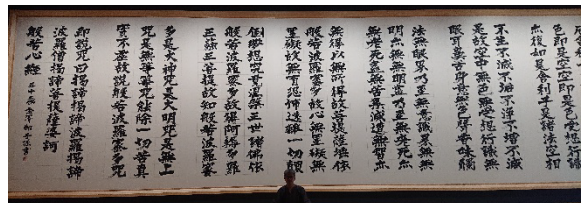 色即是空空即是色受想行識
亦復如是舍利子是諸法空相
不生不滅不垢不淨不增不減
是故空中無色無受想行識無
眼耳鼻舌身意無色聲香味觸
法無眼界乃至無意識界無無
明亦無無明盡乃至無老死亦
無老死盡無苦集滅道無智亦
無得以無所得故菩提薩埵依
般若波羅蜜多故心無罣礙無
罣礙故無有恐怖遠離一切顛
倒夢想究竟涅槃三世諸佛依
般若波羅蜜多故得阿耨多羅
三藐三菩提故知般若波羅蜜
多是大神咒是大明咒是無上
咒是無等等咒能除一切苦真
實不虛故說般若波羅蜜多咒
即說咒曰揭諦揭諦波羅揭諦
波羅僧揭諦菩提薩婆訶
般若心經